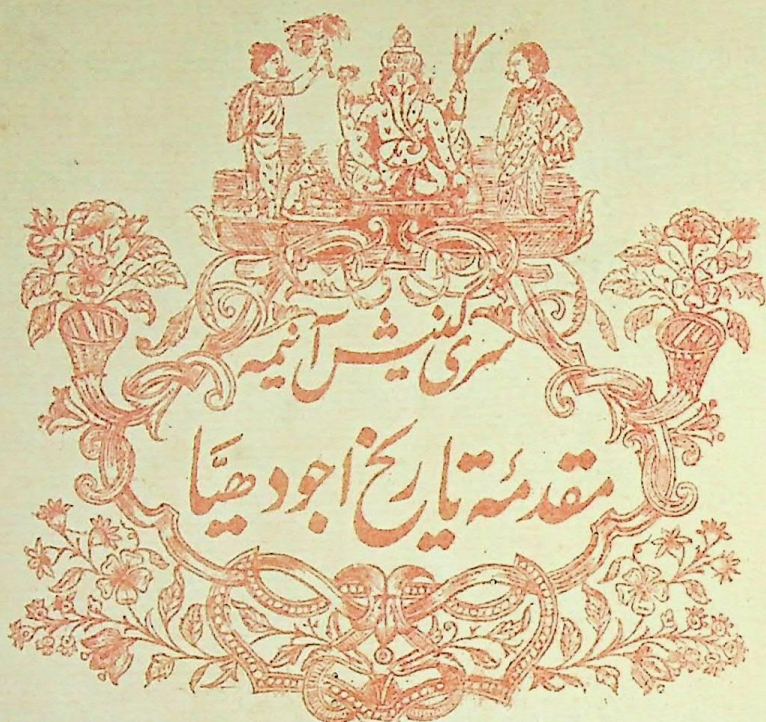 سری گنیش آئیمہ
مقدمۂ تاریخ اجودھیّا